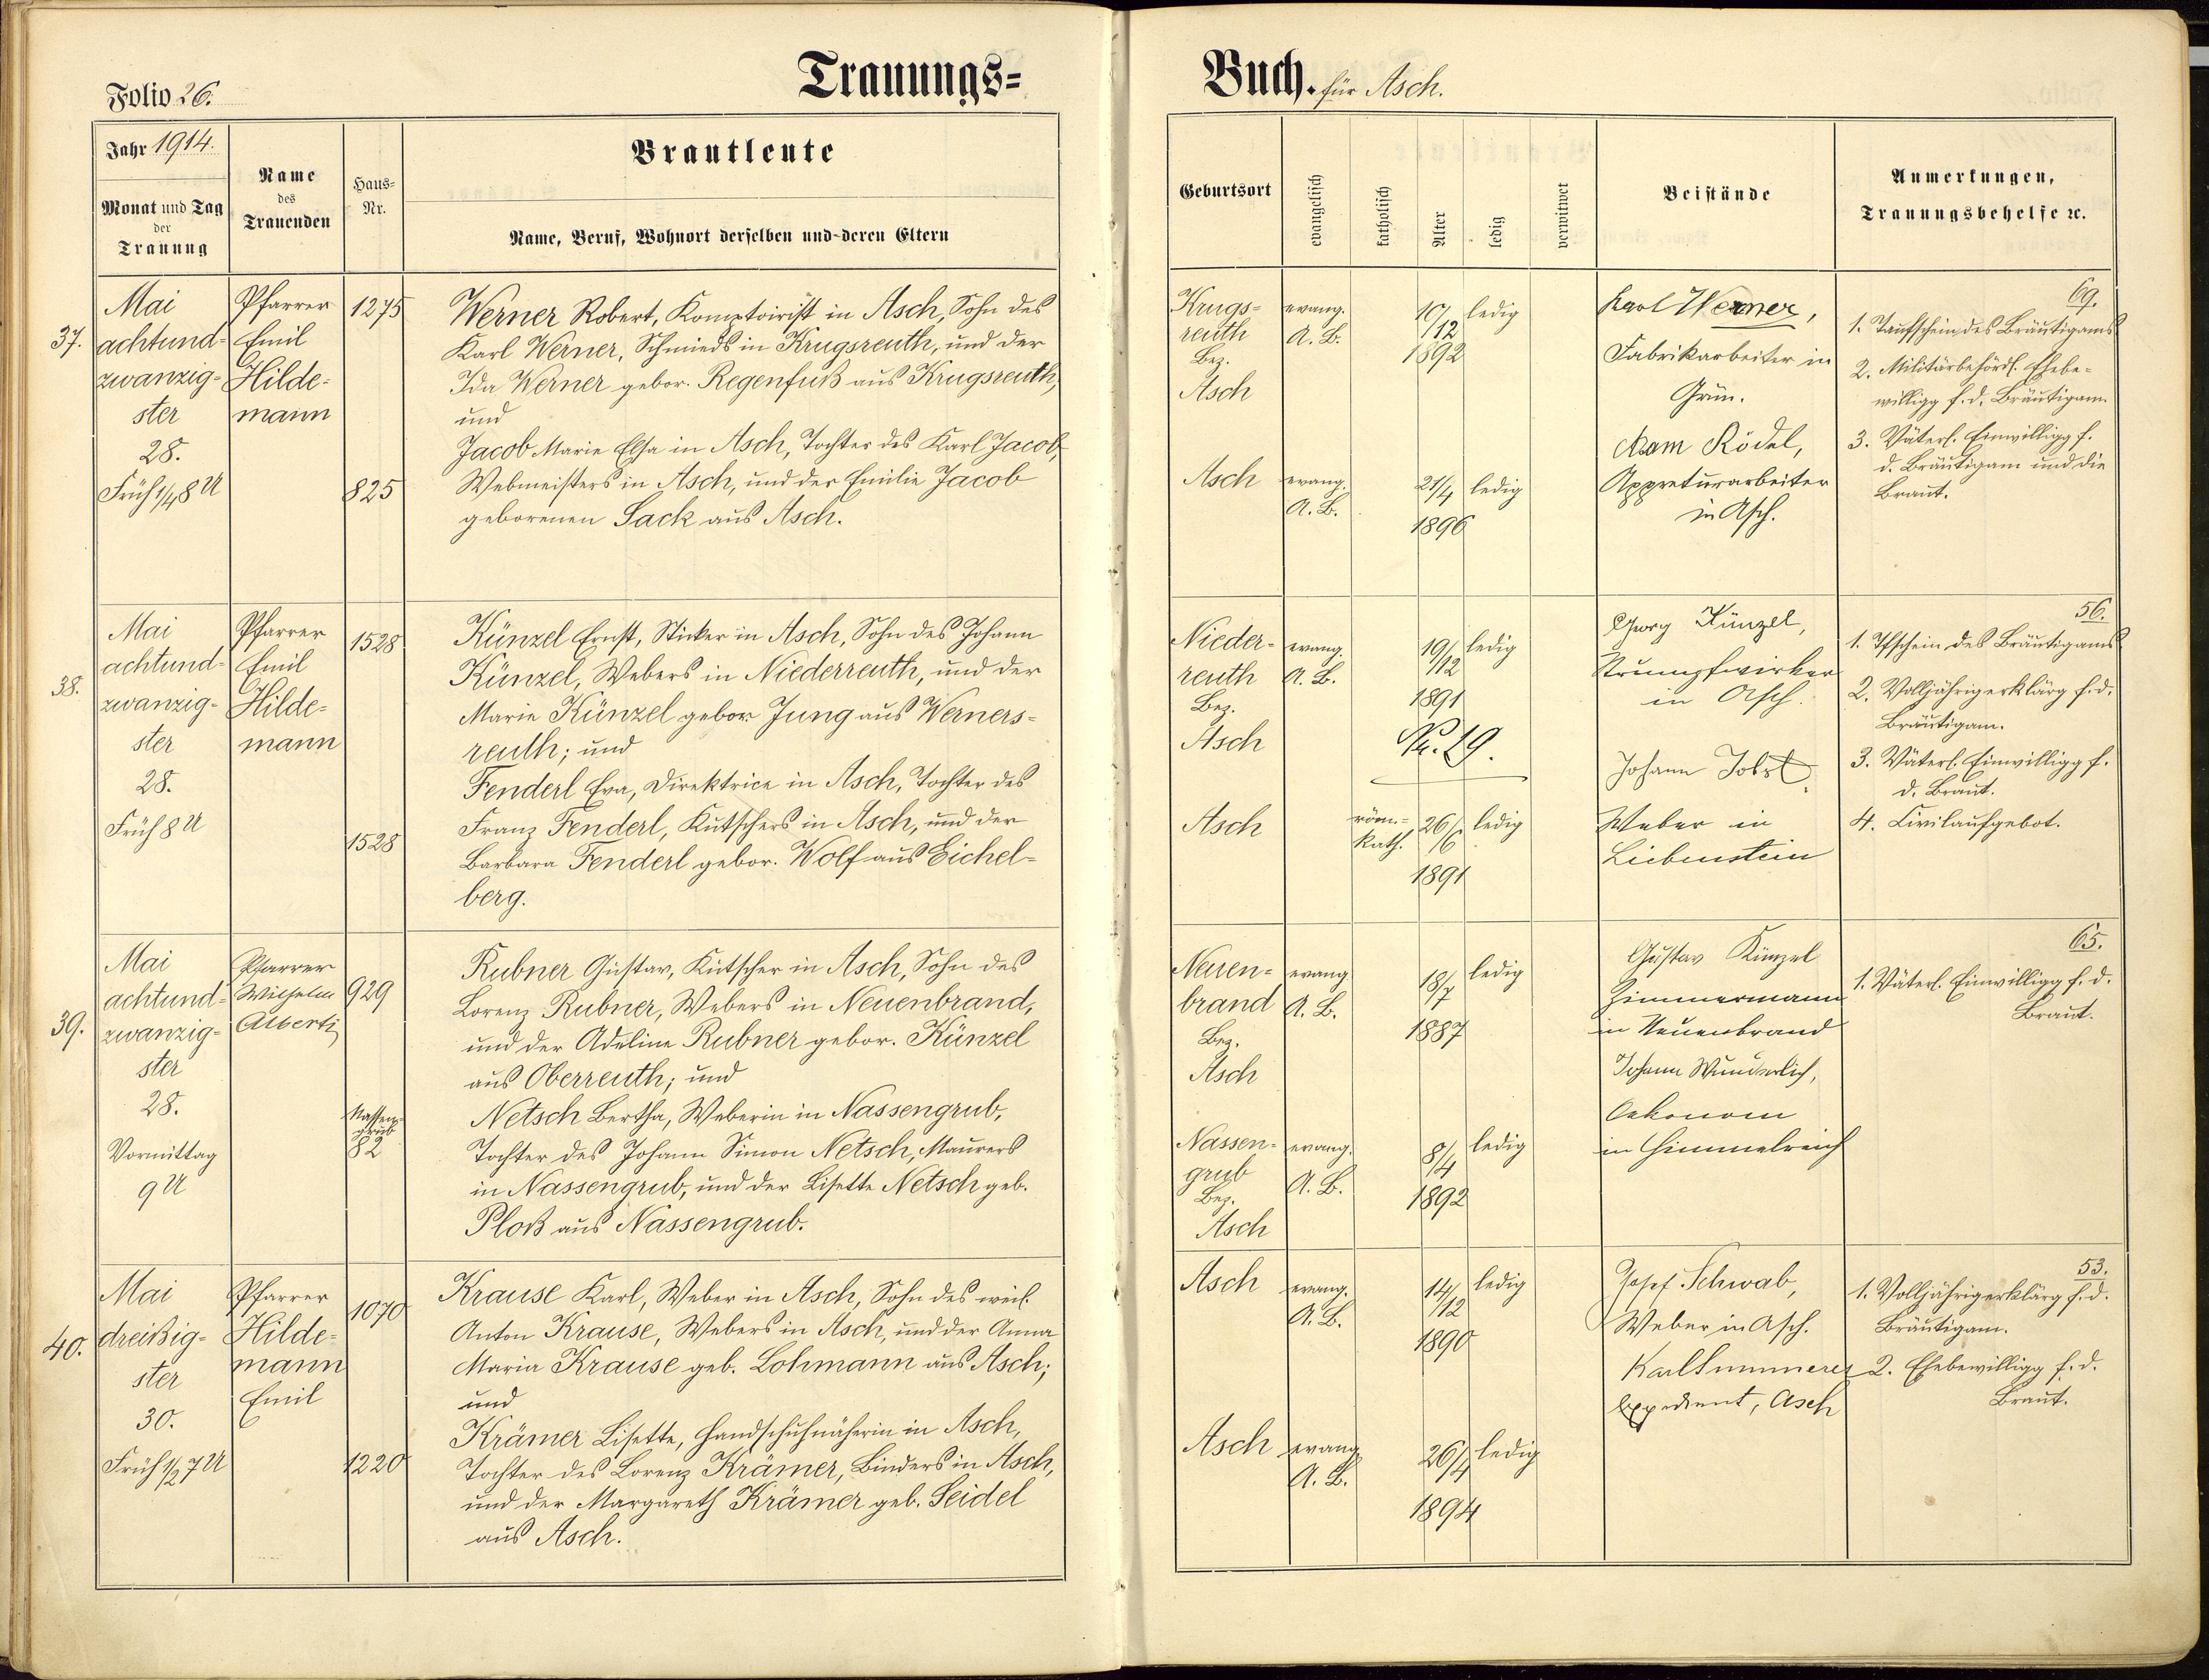 Folio 26.
Trauungs=
Buch. für Asch.
Jahr 1914.
Monat und Tag
der
Trauung
Name
des
Trauenden
Haus=
Nr.
Brautleute
Name, Beruf, Wohnort derselben und deren Eltern
Geburtsort
evangelisch
katholisch
Alter
ledig
verwitwet
Beistände
Anmerkungen,
Trauungsbehelfe ꝛc.
37.
Mai
achtund=
zwanzig=
ster
28.
Früh 1/4 8 U
Pfarrer
Emil
Hilde=
mann
1275
825
Werner Robert, Komptoirist in Asch, Sohn des
Karl Werner, Schmieds in Krugsreuth, und der
Ida Werner gebor. Regenfuß aus Krugsreuth,
und
Jacob Marie Elsa in Asch, Tochter des Karl Jacob,
Webmeisters in Asch, und der Emilie Jacob
geborenen Sack aus Asch.
Krugs=
reuth
Bez.
Asch
evang.
A. B.
10/12
1892
ledig
Asch
evang.
A. B.
21/4
1896
ledig
Karl Werner,
Fabrikarbeiter in
Grün.
Adam Rödel,
Appreturarbeiter
in Asch.
69.
1. Taufschein des Bräutigams
2. Militärbehördl. Ehebe-
willigg f. d. Bräutigam.
3. Väterl. Einwilligg f.
d. Bräutigam und die
Braut.
38.
Mai
achtund=
zwanzig=
ster
28.
Früh 8 U
Pfarrer
Emil
Hilde=
mann
1528
1528
Künzel Ernst, Sticker in Asch, Sohn des Johann
Künzel, Webers in Niederreuth, und der
Marie Künzel gebor Jung aus Werners=
reuth; und
Fenderl Eva, Direktrice in Asch, Tochter des
Franz Fenderl, Kutschers in Asch, und der
Barbara Fenderl gebor. Wolf aus Eichel=
berg.
Nieder=
reuth
Bez.
Asch
evang.
A. B.
19/12
1891
ledig
Nr. 29.
Asch
röm.=
kath.
26/6
1891
ledig
Georg Künzel,
Strumpfwirker
in Asch.
Johann Jobst,
Weber in
Liebenstein
56.
1. Tfschein des Bräutigams
2. Volljährigerklärg f. d.
Bräutigam.
3. Väterl. Einwilligg f.
d. Braut.
4. Civilaufgebot.
39.
Mai
achtund=
zwanzig=
ster
28.
Vormittag
9 U
Pfarrer
Wilhelm
Alberti
929
Nassen-
grub
82
Rubner Gustav, Kutscher in Asch, Sohn des
Lorenz Rubner, Webers in Neuenbrand,
und der Adeline Rubner gebor. Künzel
aus Oberreuth; und
Netsch Bertha, Weberin in Nassengrub,
Tochter des Johann Simon Netsch, Maurers
in Nassengrub, und der Lisette Netsch geb.
Ploß aus Nassengrub.
Neuen=
brand
Bez.
Asch
evang
A. B.
18/7
1887
ledig
Nassen=
grub
Bez.
Asch
evang.
A. B.
8/4
1892
ledig
Gustav Künzel
Zimmermann
in Neuenbrand
Johann Wunderlich,
Oekonom
in Himmelreich
65.
1. Väterl. Einwilligg f. d.
Braut.
40.
Mai
dreißig=
ster
30.
Früh 1/2 7 U
Pfarrer
Hilde=
mann
Emil
1070
1220
Krause Karl, Weber in Asch, Sohn des weil.
Anton Krause, Webers in Asch, und der Anna
Maria Krause geb. Lohmann aus Asch;
und
Krämer Lisette, Handschuhnäherin in Asch,
Tochter des Lorenz Krämer, Binders in Asch,
und der Margareth Krämer geb. Seidel
aus Asch.
Asch
evang.
A. B.
14/12
1890
ledig
Asch
evang
A. B.
26/4
1894
ledig
Josef Schwab,
Weber in Asch.
Karl Summerer
Expedient, Asch
53.
1. Volljährigerklärg f. d.
Bräutigam.
2. Ehebewilligg f. d.
Braut.